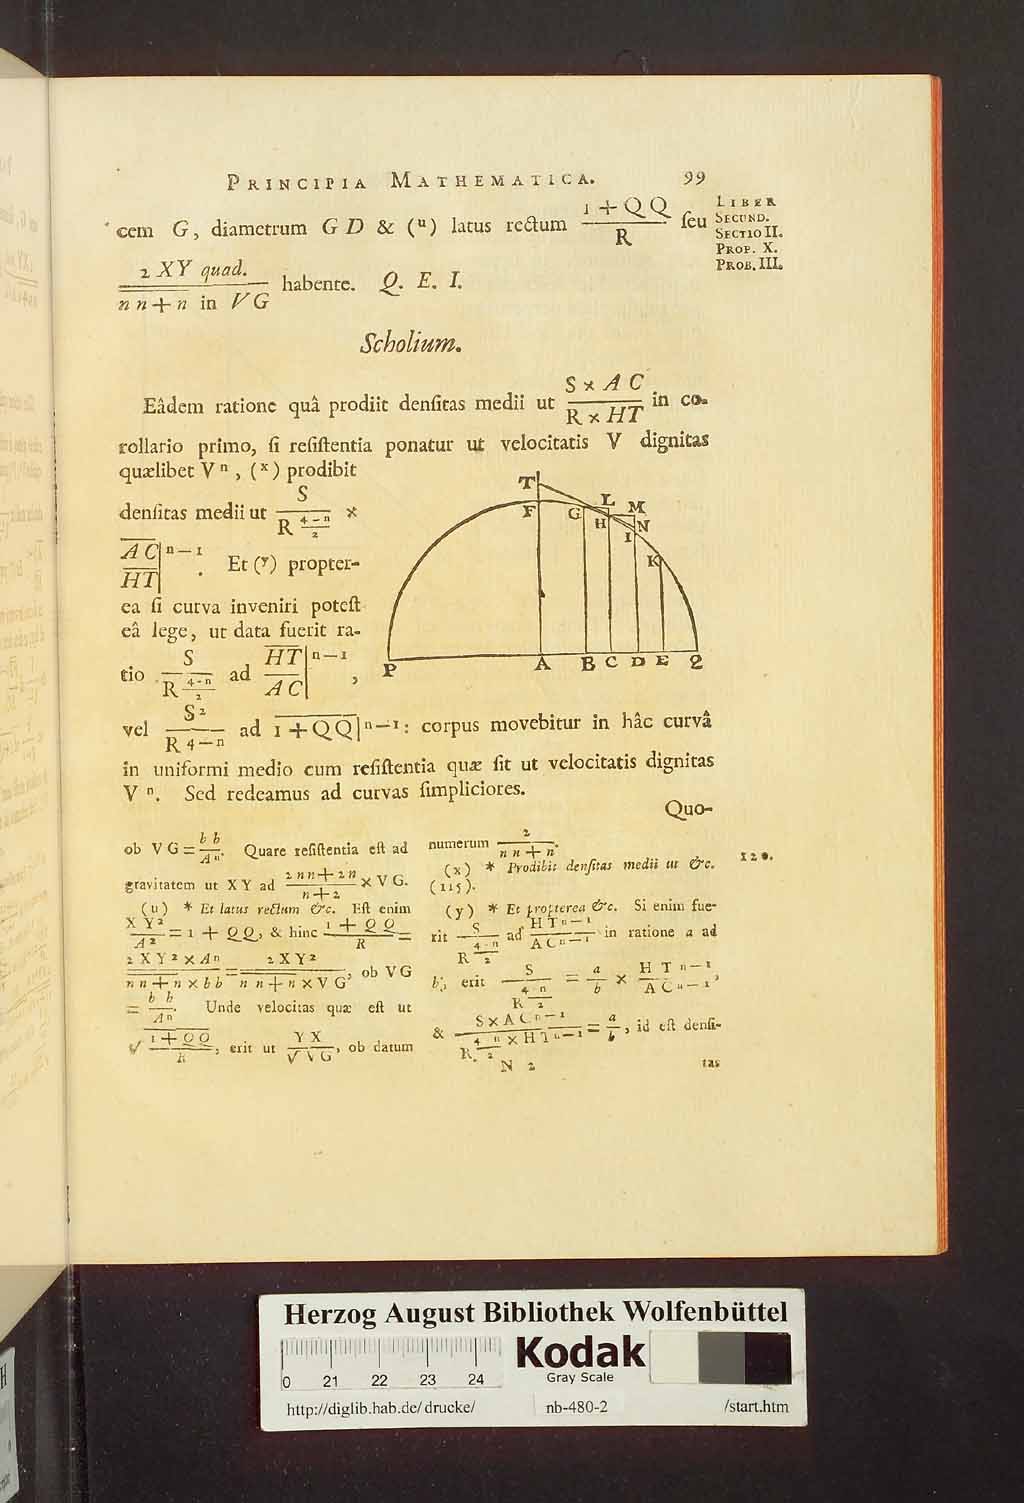 PRINCIPIA MATHEMATICA. 99
LIBER
SECUND.
SECTIO II.
PROP. X.
PROB. III.
cem G, diametrum G D & (ᵘ) latus rectum 1 + QQ / R ſeu
2 XY quad. / nn + n in VG habente. Q. E. I.
Scholium.
Eâdem ratione quâ prodiit denſitas medii ut S × A C / R × HT in co-
rollario primo, ſi reſiſtentia ponatur ut velocitatis V dignitas
quælibet V ⁿ, (ˣ) prodibit
denſitas medii ut S / R (4-n)/2 ×
A C / HT | n-1 . Et (ʸ) propter-
ea ſi curva inveniri poteſt
eâ lege, ut data fuerit ra-
tio S / R (4-n)/2 ad HT / A C | n-1 ,
T
F
G
L
H
M
N
I
K
P A B C D E Q
vel S² / R 4-n ad 1 + QQ | n-1 : corpus movebitur in hâc curvâ
in uniformi medio cum reſiſtentia quæ ſit ut velocitatis dignitas
V ⁿ. Sed redeamus ad curvas ſimpliciores.
Quo-
ob V G = b b / Aⁿ. Quare reſiſtentia eſt ad
gravitatem ut X Y ad 2nn + 2n / n + 2 × V G.
(u) * Et latus rectum &c. Eſt enim
X Y² / A² = 1 + QQ, & hinc 1 + QQ / R =
2 X Y² × Aⁿ / nn + n × bb = 2 X Y² / nn + n × V G, ob V G
= b b / Aⁿ. Unde velocitas quæ eſt ut
√ 1 + QQ / R, erit ut Y X / √ V G, ob datum
numerum 2 / nn + n.
(x) * Prodibit denſitas medii ut &c.
(115).
120.
(y) * Et propterea &c. Si enim fue-
rit S / R (4-n)/2 ad H T n-1 / A C n-1 in ratione a ad
b, erit S / R (4-n)/2 = a / b × H T n-1 / A C n-1,
& S × A C n-1 / R (4-n)/2 × H T n-1 = a / b, id eſt denſi-
N 2 tas
Herzog August Bibliothek Wolfenbüttel
Kodak
Gray Scale
0 21 22 23 24
http://diglib.hab.de/drucke/ nb-480-2 /start.htm